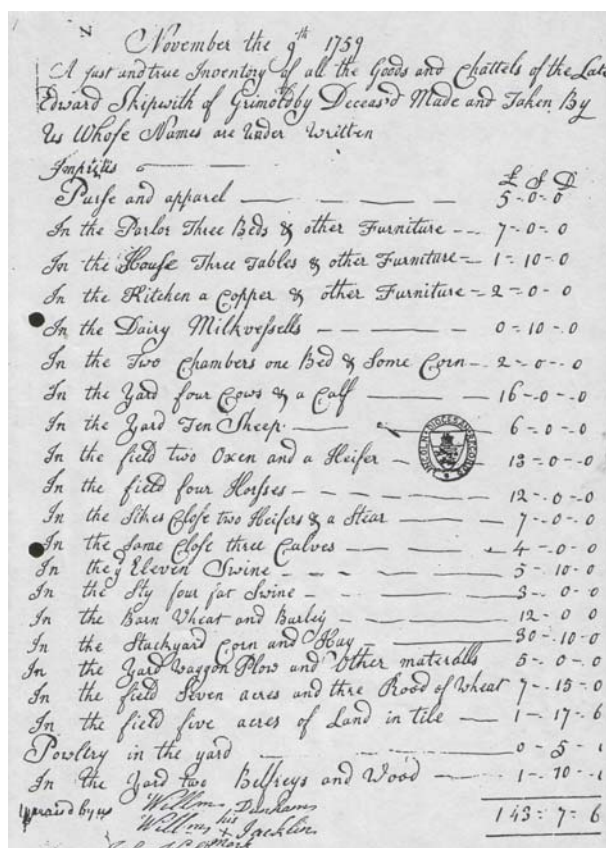 November the 9th 1759
A Just and true Inventory of all the Goods and Chattels of the Late
Edward Skipwith of Grimoldby Deceas'd Made and Taken By
Us Whose Names are under written
Imprites
£ S D
Purse and apparel 5-0-0
In the Parlor Three Beds & other Furniture 7-0-0
In the House Three Tables & other Furniture 1-10-0
In the Kitchen a Copper & other Furniture 2-0-0
In the Dairy Milkvessells 0-10-0
In the Two Chambers one Bed & Some Corn 2-0-0
In the Yard four Cows & a Calf 16-0-0
In the Yard Ten Sheep 6-0-0
In the field two Oxen and a Heifer 13-0-0
In the field four Horsses 12-0-0
In the Sikes Close two Heifers & a Stear 7-0-0
In the Same Close three Calves 4-0-0
In the Eleven Swine 5-10-0
In the Sty four fat Swine 3-0-0
In the Barn Wheat and Barley 12-0-0
In the Stackyard Corn and Hay 30-10-0
In the Yard Waggon Plow and Other materalls 5-0-0
In the field Seven acres and thre Rood of Wheat 7-15-0
In the field five acres of Land in tile 1-17-6
Powlery in the yard 0-5-
In the Yard two Belfreys and Wood 1-10-
Willm Dunhams
his
Willm X Jacklin
mark
143=7=6
LINCOLN DIOCESAN RECORDS